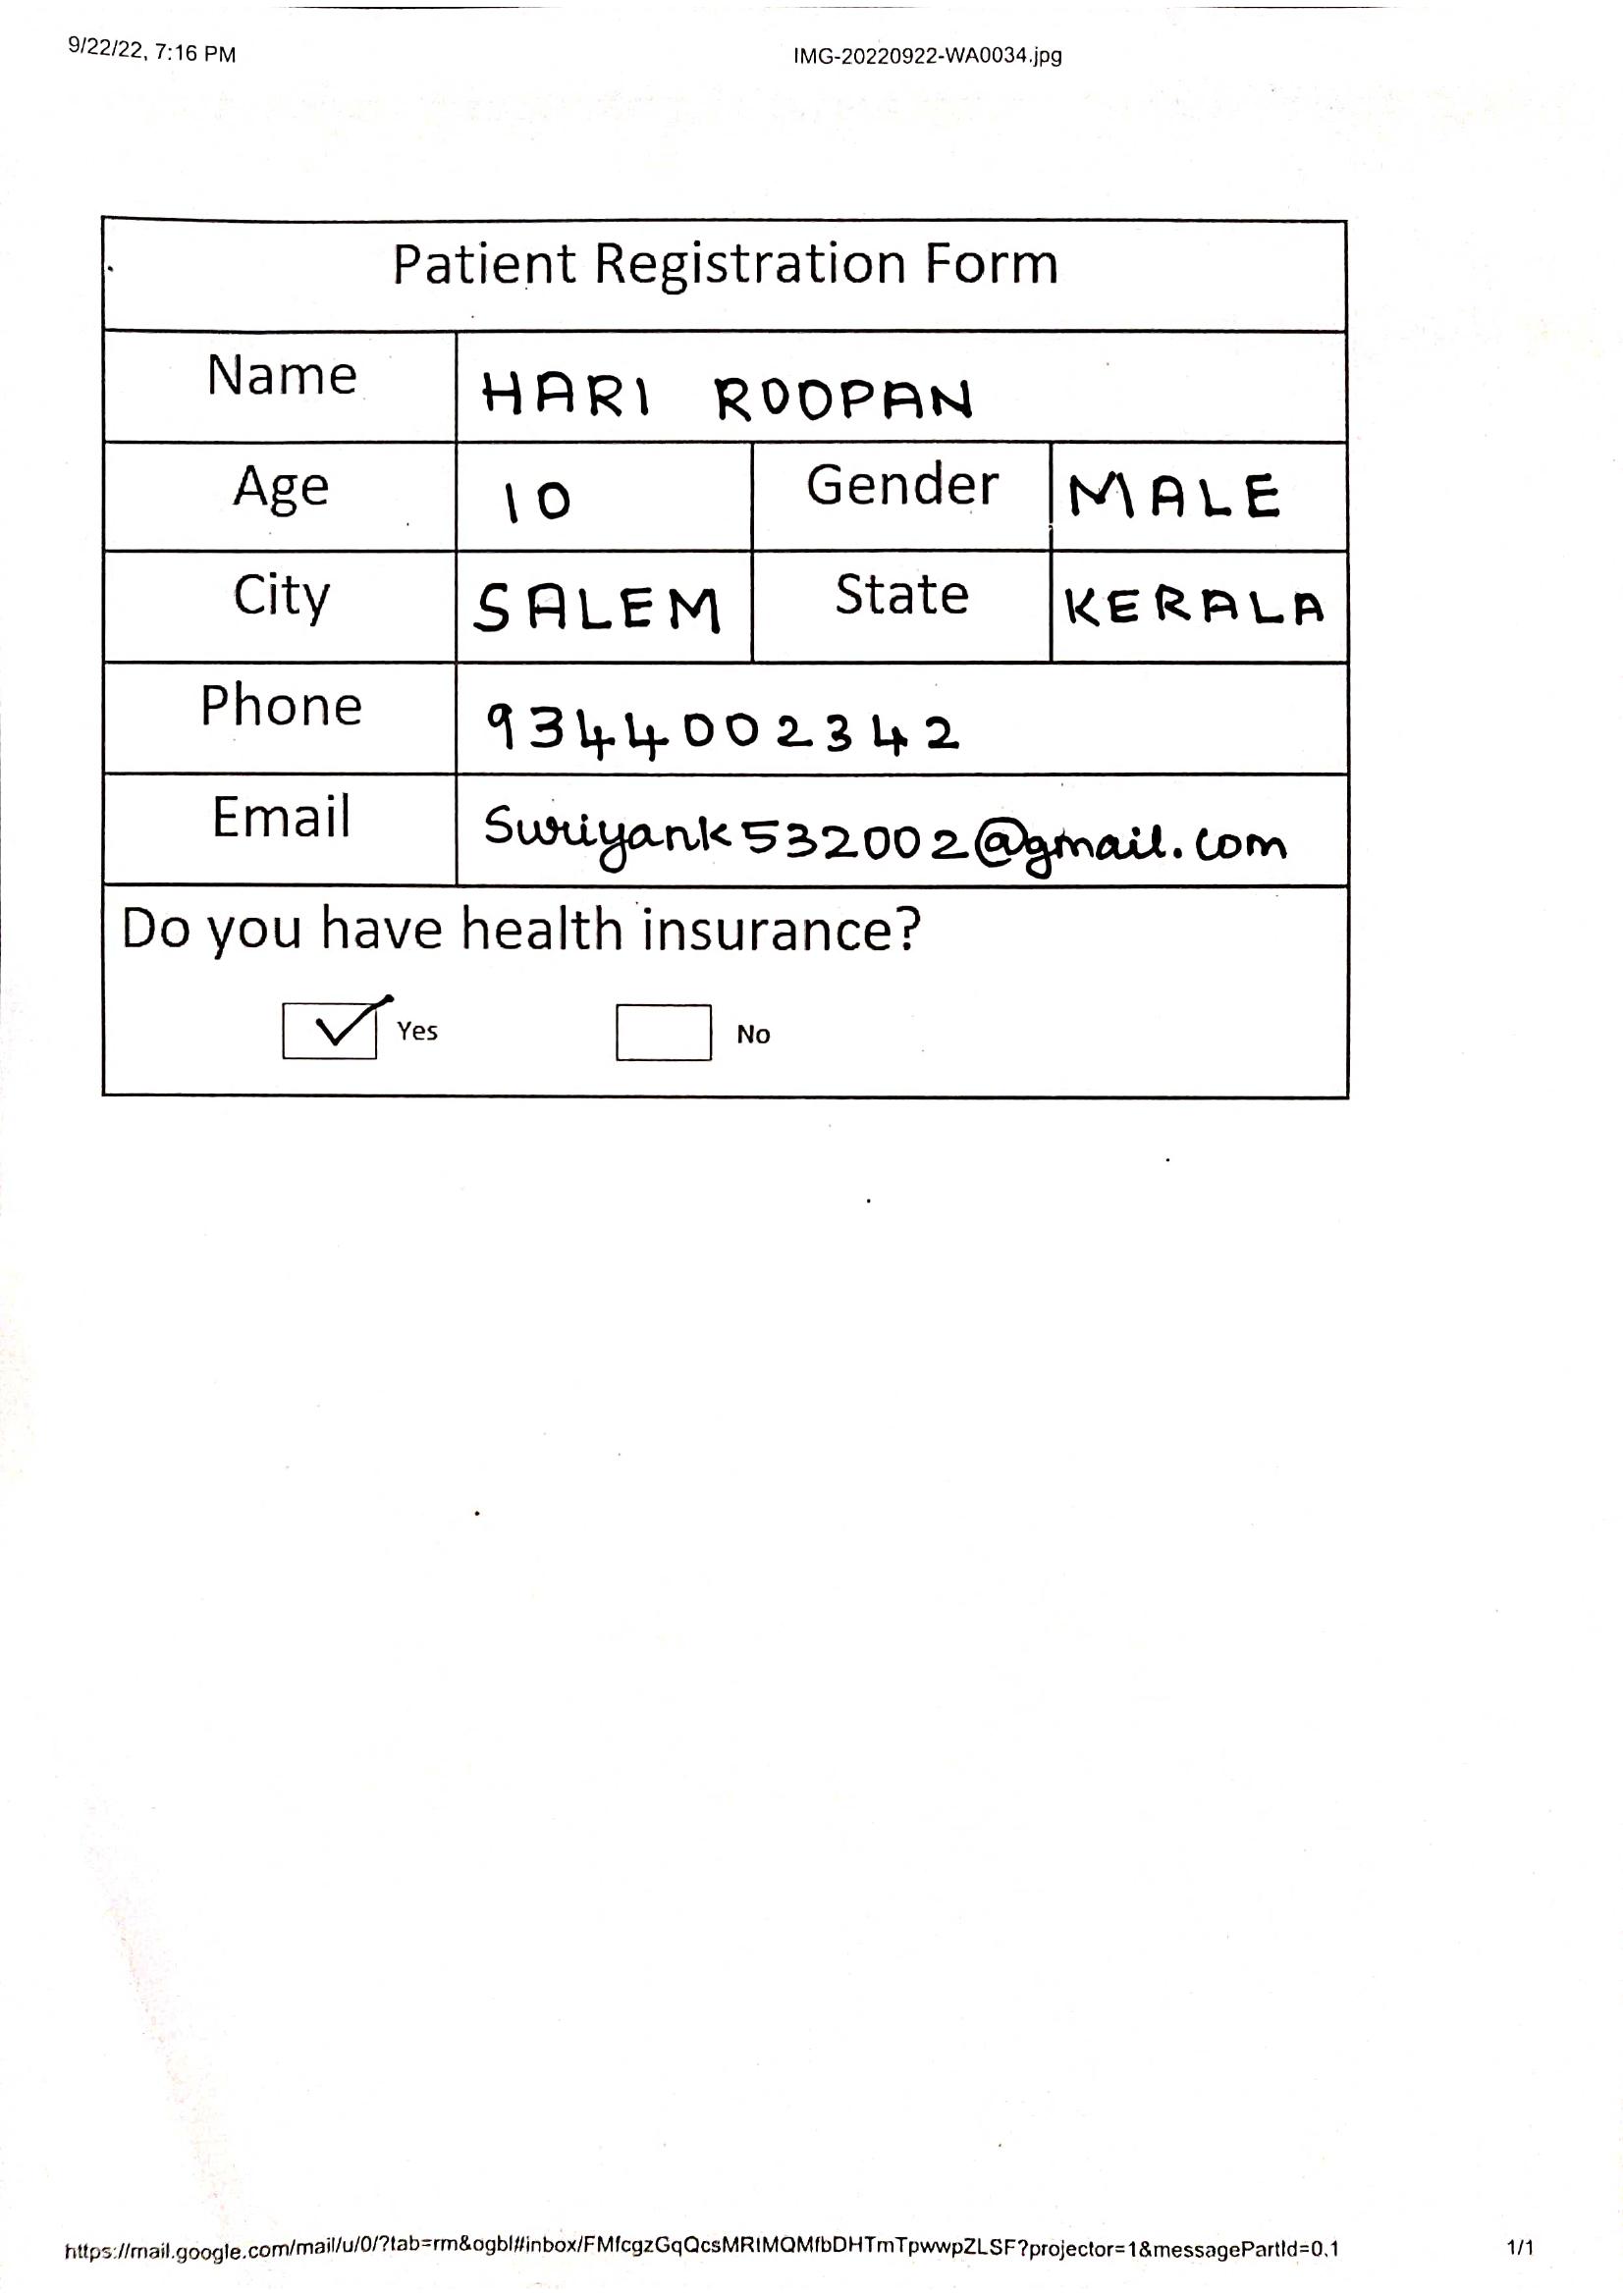 9/22/22, 7:16 PM IMG-20220922-WA0034.jpg
Patient Registration Form
Name HARI ROOPAN
Age 10 Gender MALE
City SALEM State KERALA
Phone 9344002342
Email Suriyank532002@gmail.com
Do you have health insurance?
Yes No
https://mail.google.com/mail/u/0/?tab=rm&ogbl#inbox/FMfcgzGqQcsMRlMQMfbDHTmTpwwpZLSF?projector=1&messagePartId=0.1 1/1